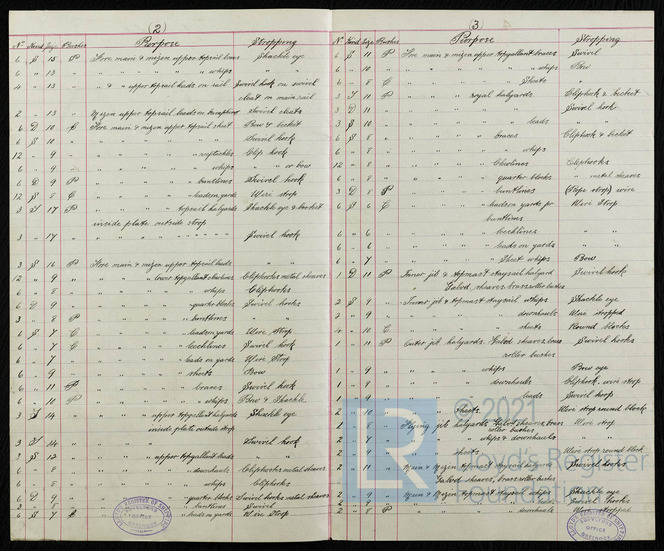 (2)
No Kind Size Bushes Purpose Stropping
6 S 15 P Fore main & mizen upper topsail braces Shackle eye
6 " 13 " " " " " whips " "
4 " 13 " & " upper topsail leads on rail Swivel hook on swivel
cleat on main rail
2 " 13 Mizen upper topsail leads on Swivel cleats
6 D 10 C Fore main & mizen upper topsail sheet Bow & becket
6 S 10 " " " " Swivel hook
12 " 9 " " " " reeftackles Clip hook
6 " 9 " " " " whips " " or bow
6 D 9 P " " " " buntlines Swivel hook
12 S 8 C " " " " leads on yard Wire strop
3 T 17 P " " " " topsail halyards Shackle eye & becket
inside plate outside strop
3 " 17 " " " " " Swivel hook
3 S 16 P Fore main & mizen upper topsail leads
6 " 9 " " " " lower topgallant clewlines Cliphooks metal sheaves
6 " 8 " " " " whips Cliphooks
6 D 9 " " " " quarter blocks Swivel hooks
3 " 8 P " " " " buntlines
6 S 7 C " " " " leads on yard Wire Strop
6 " 7 C " " " " leechlines Swivel hook
6 " 7 " " " " leads on yards Wire Strop
6 " 9 " " " " sheets Bow
6 " 11 P " " " " braces Swivel hook
6 " 10 P " " " " whips Bow & Shackle
3 T 14 " " " " upper topgallant halyards Shackle eye
inside plate outside strop
3 T 14 " " " " Swivel hook
3 S 12 " " " " upper topgallant leads " "
6 " 8 " " " " downhauls Cliphooks metal sheaves
6 " 8 " " " " whips Cliphooks
6 D 9 " " " " quarter blocks Swivel hooks metal sheaves
3 " 8 " " " " buntlines Swivel
6 S 7 " " " " leads on yard Wire Strop
(3)
No Kind Size Bushes Purpose Stropping
6 S 11 P Fore main & mizen upper topgallant braces Swivel
6 " 10 " " " " " whips Bow
6 " 8 C " " " " Sheets
3 T 11 P " " " royal halyards Cliphook & becket
3 D 11 " " " " Swivel hook
3 S 10 " " " " leads " "
6 S 8 " " " " braces Cliphook & becket
6 " 8 " " " " whips
12 " 8 " " " " Clewlines Cliphooks
6 " 8 " " " " quarter blocks " metal sheaves
3 D 8 P " " " " buntlines wire
6 S 6 C " " " " leads on yards for Wire Strop
buntlines
6 " 6 " " " " leechlines " "
6 " 6 " " " " leads on yards " "
6 " 7 " " " " Sheet whips Bow
1 D 11 P Inner jib & topmast staysail halyard Swivel hook
Galvd. sheaves, brass roller bushes
2 S 9 " Inner jib & topmast staysail whips Shackle eye
2 " 9 " " " " downhauls Wire stropped
4 " 10 C " " " " sheets Round blocks
1 " 11 P Outer jib halyards. Galvd sheaves, brass Swivel hooks
roller bushes
1 " 9 " " whips Bow eye
1 " 9 " " downhauls Cliphook wire strop
1 " 9 " " leads Swivel hoop
2 " 10 " " sheets Wire strop round block
1 " 8 Flying jib halyards Galvd sheaves, brass Wire strop
roller bushes
2 " 7 " " " whips & downhauls " "
2 " 9 " " sheets Wire strop round block
2 " Main & Mizen topmast staysail halyards Swivel hooks
Galvd. sheaves, brass roller bushes
2 " 9 " Main & Mizen topmast staysail whips Shackle eye
Swivel hooks
2 " 8 P " " " " downhauls Wire stropped
© 2021
LR
Lloyd's Register
Foundation